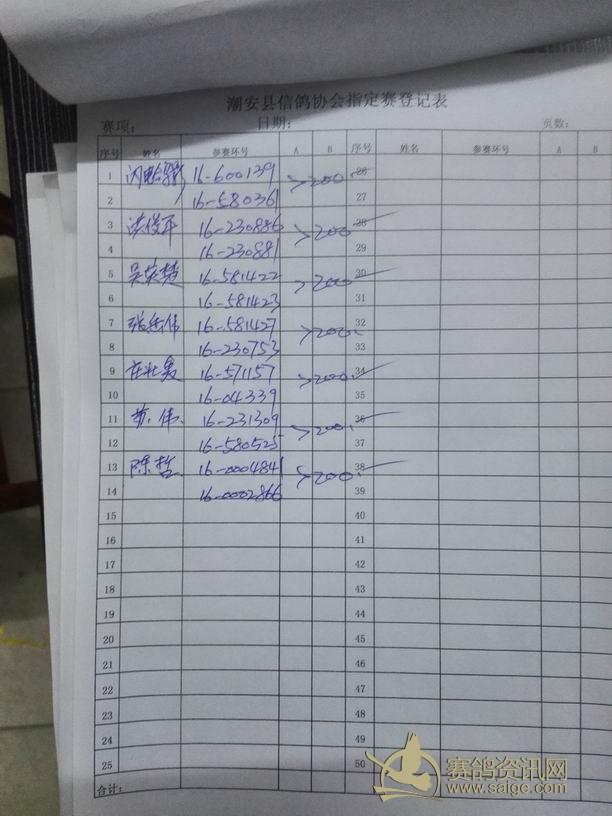 潮安县信鸽协会指定赛登记表
赛项： 日期： 页数：
序号 姓名 参赛环号 A B 序号 姓名 参赛环号 A B
1 闪电 16-600139 >200. 26
2 16-580361 27
3 洪俊平 16-230886 >200. 28
4 16-230881 29
5 吴英楚 16-581422 >200. 30
6 16-581423 31
7 张 伟 16-581427 >200. 32
8 16-230753 33
9 庄壮 16-571157 >200. 34
10 16-04339 35
11 苏伟 16-231309 >200. 36
12 16-580525 37
13 陈哲 16-0004841 >200. 38
14 16-0002866 39
15 40
16 41
17 42
18 43
19 44
20 45
21 46
22 47
23 48
24 49
25 50
合计：
赛鸽资讯网
www.saige.com